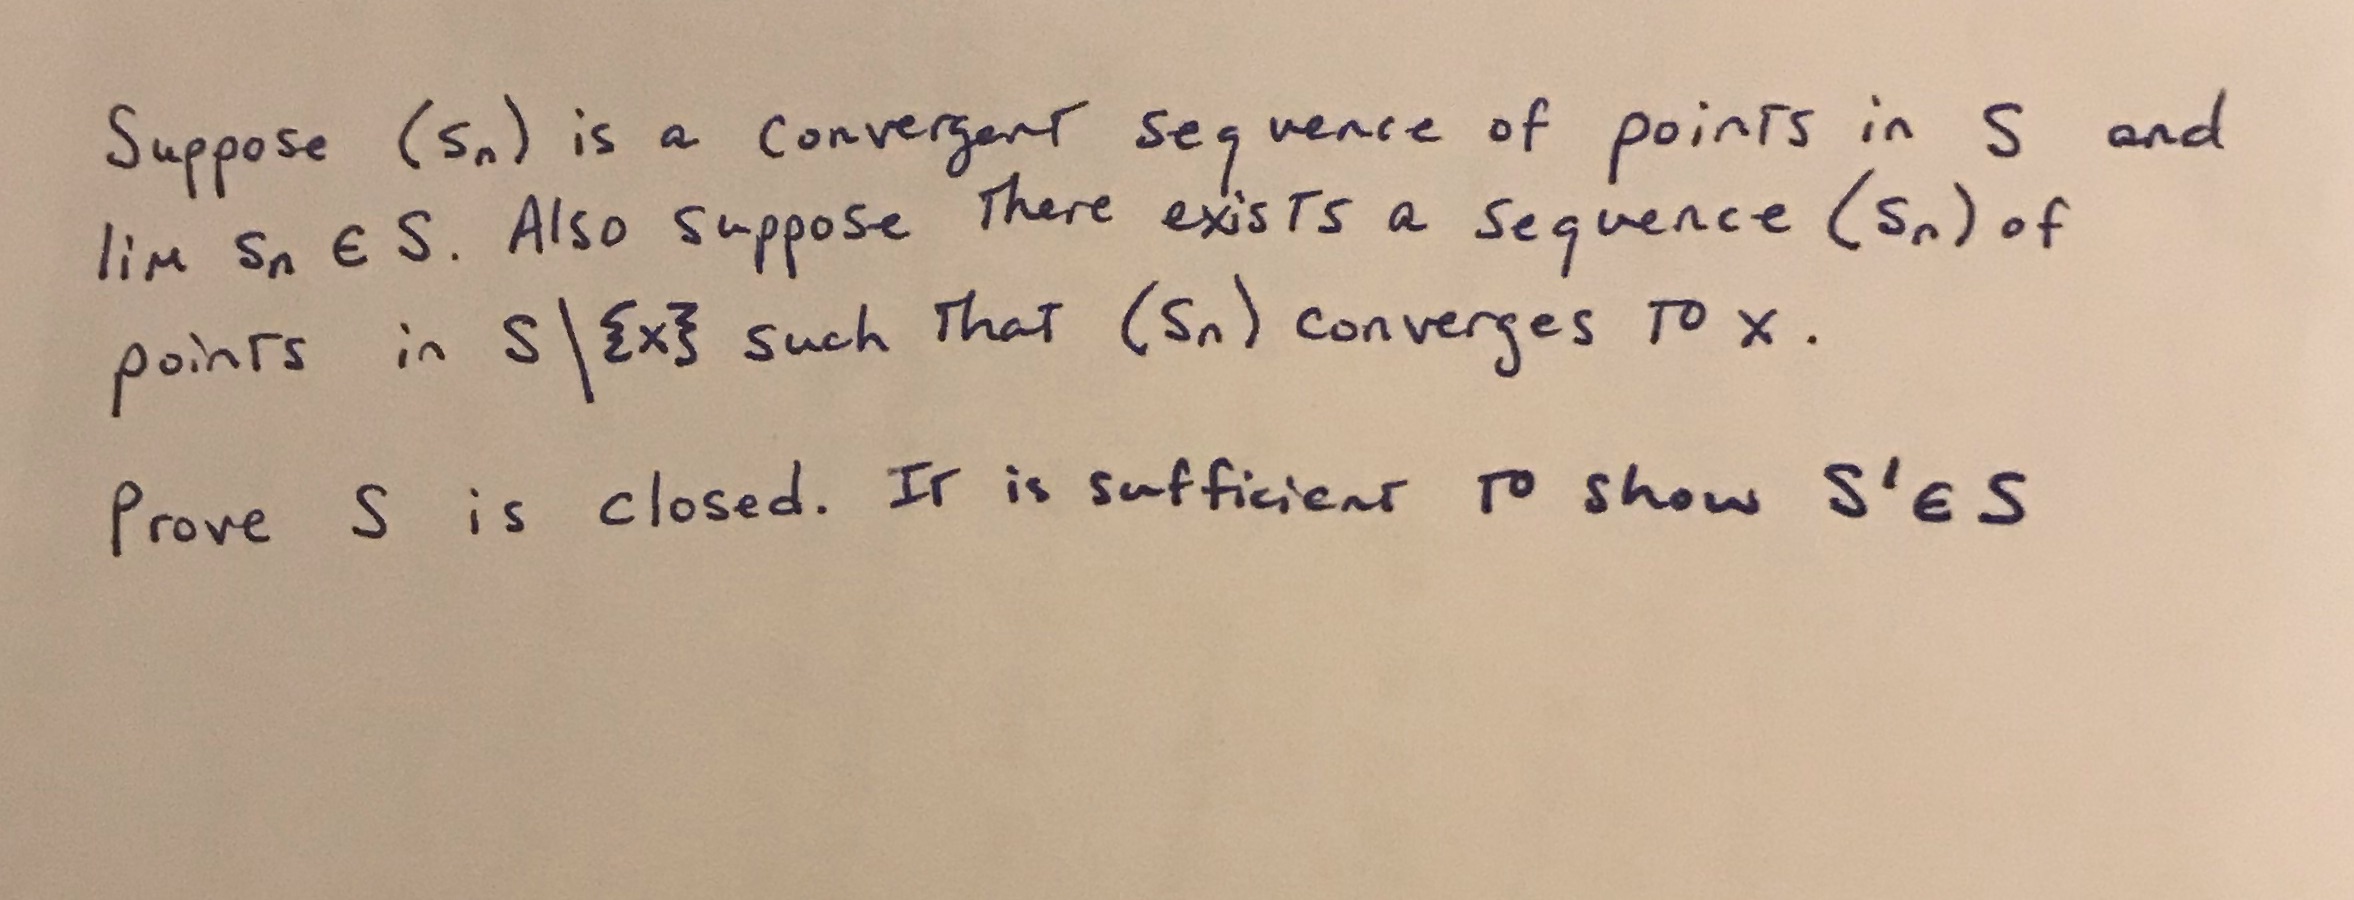 Suppose (sₙ) is a convergent sequence of points in S and
lim sₙ ∈ S. Also suppose there exists a sequence (sₙ) of
points in S\{x} such that (sₙ) converges to x.
Prove S is closed. It is sufficient to show S' ∈ S